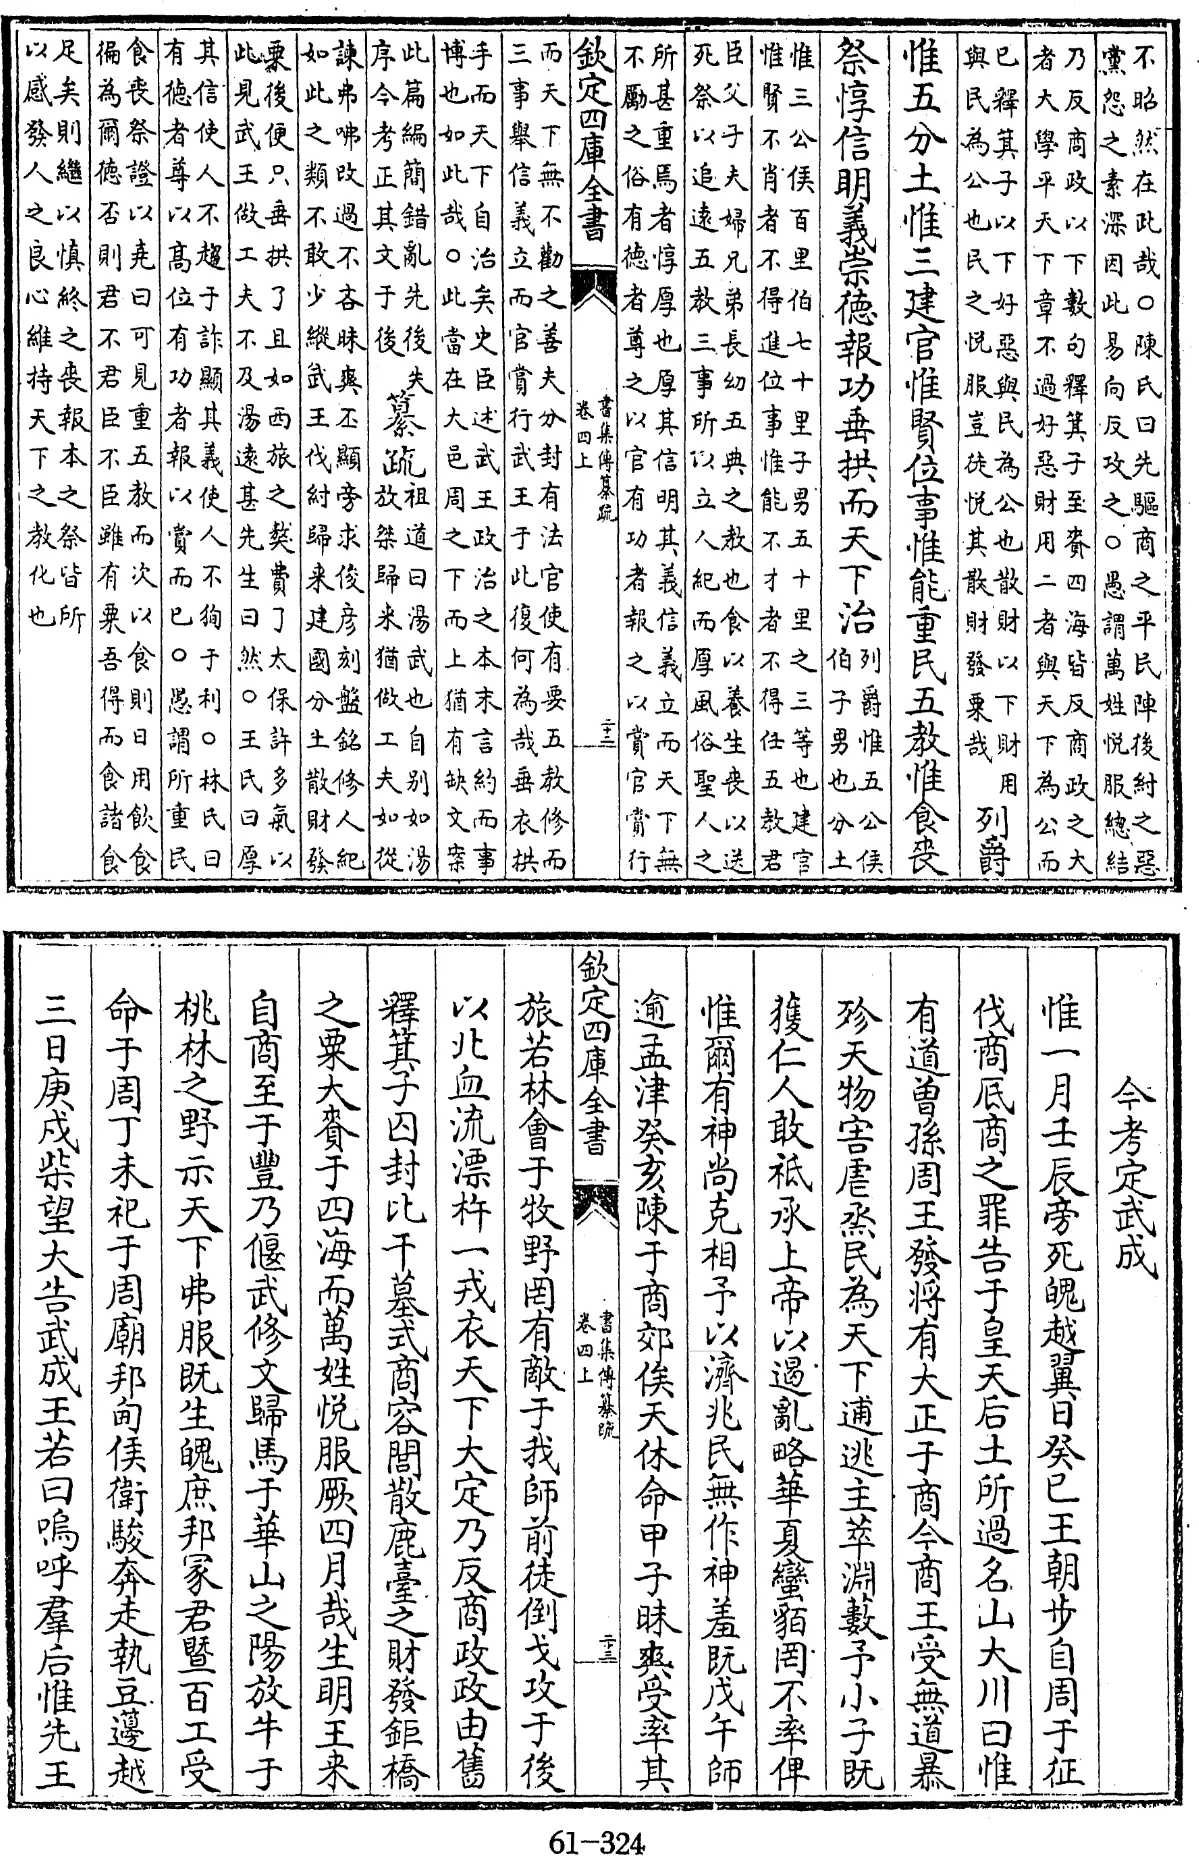 不昭然在此哉○陳氏曰先驅商之平民陣後紂之惡
黨怨之素深因此易向反攻之○愚謂萬姓悦服總結
乃反商政以下數句釋箕子至賚四海皆反商政之大
者大學平天下章不過好惡財用二者與天下為公而
已釋箕子以下好惡與民為公也散財以下財用
與民為公也民之悦服豈徒悦其散財發粟哉
列爵
惟五分土惟三建官惟賢位事惟能重民五教惟食喪
祭惇信明義崇德報功垂拱而天下治
列爵惟五公侯
伯子男也分土
惟三公侯百里伯七十里子男五十里之三等也建官
惟賢不肖者不得進位事惟能不才者不得任五教君
臣父子夫婦兄弟長幼五典之教也食以養生喪以送
死祭以追遠五教三事所以立人紀而厚風俗聖人之
所甚重焉者惇厚也厚其信明其義信義立而天下無
不勵之俗有德者尊之以官有功者報之以賞官賞行
欽定四庫全書
書集傳纂疏
卷四上
二十二
而天下無不勸之善夫分封有法官使有要五教修而
三事舉信義立而官賞行武王于此復何為哉垂衣拱
手而天下自治矣史臣述武王政治之本末言約而事
博也如此哉○此當在大邑周之下而上猶有缺文案
此篇編簡錯亂先後失
序今考正其文于後
纂疏
祖道曰湯武也自别如湯
放桀歸来猶做工夫如從
諫弗咈改過不吝昧爽丕顯旁求俊彦刻盤銘修人紀
如此之類不敢少縱武王伐紂歸来建國分土散財發
粟後便只垂拱了且如西旅之獒費了太保許多氣以
此見武王做工夫不及湯遠甚先生曰然○王氏曰厚
其信使人不趨于詐顯其義使人不狥于利○林氏曰
有德者尊以髙位有功者報以賞而已○愚謂所重民
食喪祭證以堯曰可見重五教而次以食則日用飲食
徧為爾德否則君不君臣不臣雖有粟吾得而食諸食
足矣則繼以慎終之喪報本之祭皆所
以感發人之良心維持天下之教化也
今考定武成
惟一月壬辰旁死魄越翼日癸巳王朝步自周于征
伐商厎商之罪告于皇天后土所過名山大川曰惟
有道曽孫周王發將有大正于商今商王受無道暴
殄天物害虐烝民為天下逋逃主萃淵藪予小子既
獲仁人敢祗承上帝以遏亂略華夏蠻貊罔不率俾
惟爾有神尚克相予以濟兆民無作神羞既戊午師
逾孟津癸亥陳于商郊俟天休命甲子昧爽受率其
欽定四庫全書
書集傳纂疏
卷四上
二十三
旅若林會于牧野罔有敵于我師前徒倒戈攻于後
以北血流漂杵一戎衣天下大定乃反商政政由舊
釋箕子囚封比干墓式商容閭散鹿臺之財發鉅橋
之粟大賚于四海而萬姓悦服厥四月哉生明王来
自商至于豐乃偃武修文歸馬于華山之陽放牛于
桃林之野示天下弗服既生魄庶邦冢君暨百工受
命于周丁未祀于周廟邦甸侯衛駿奔走執豆籩越
三日庚戌柴望大告武成王若曰嗚呼羣后惟先王
61-324